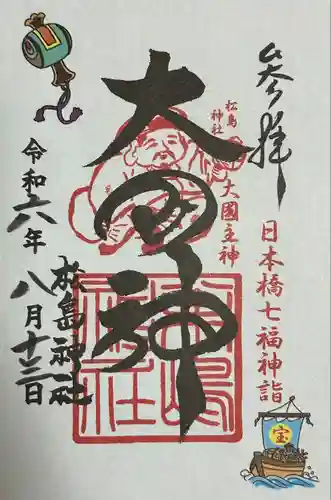 奉拝
日本橋七福神詣
松島神社
大國主神
大国神
松島神社
令和六年八月十三日
松島神社
宝